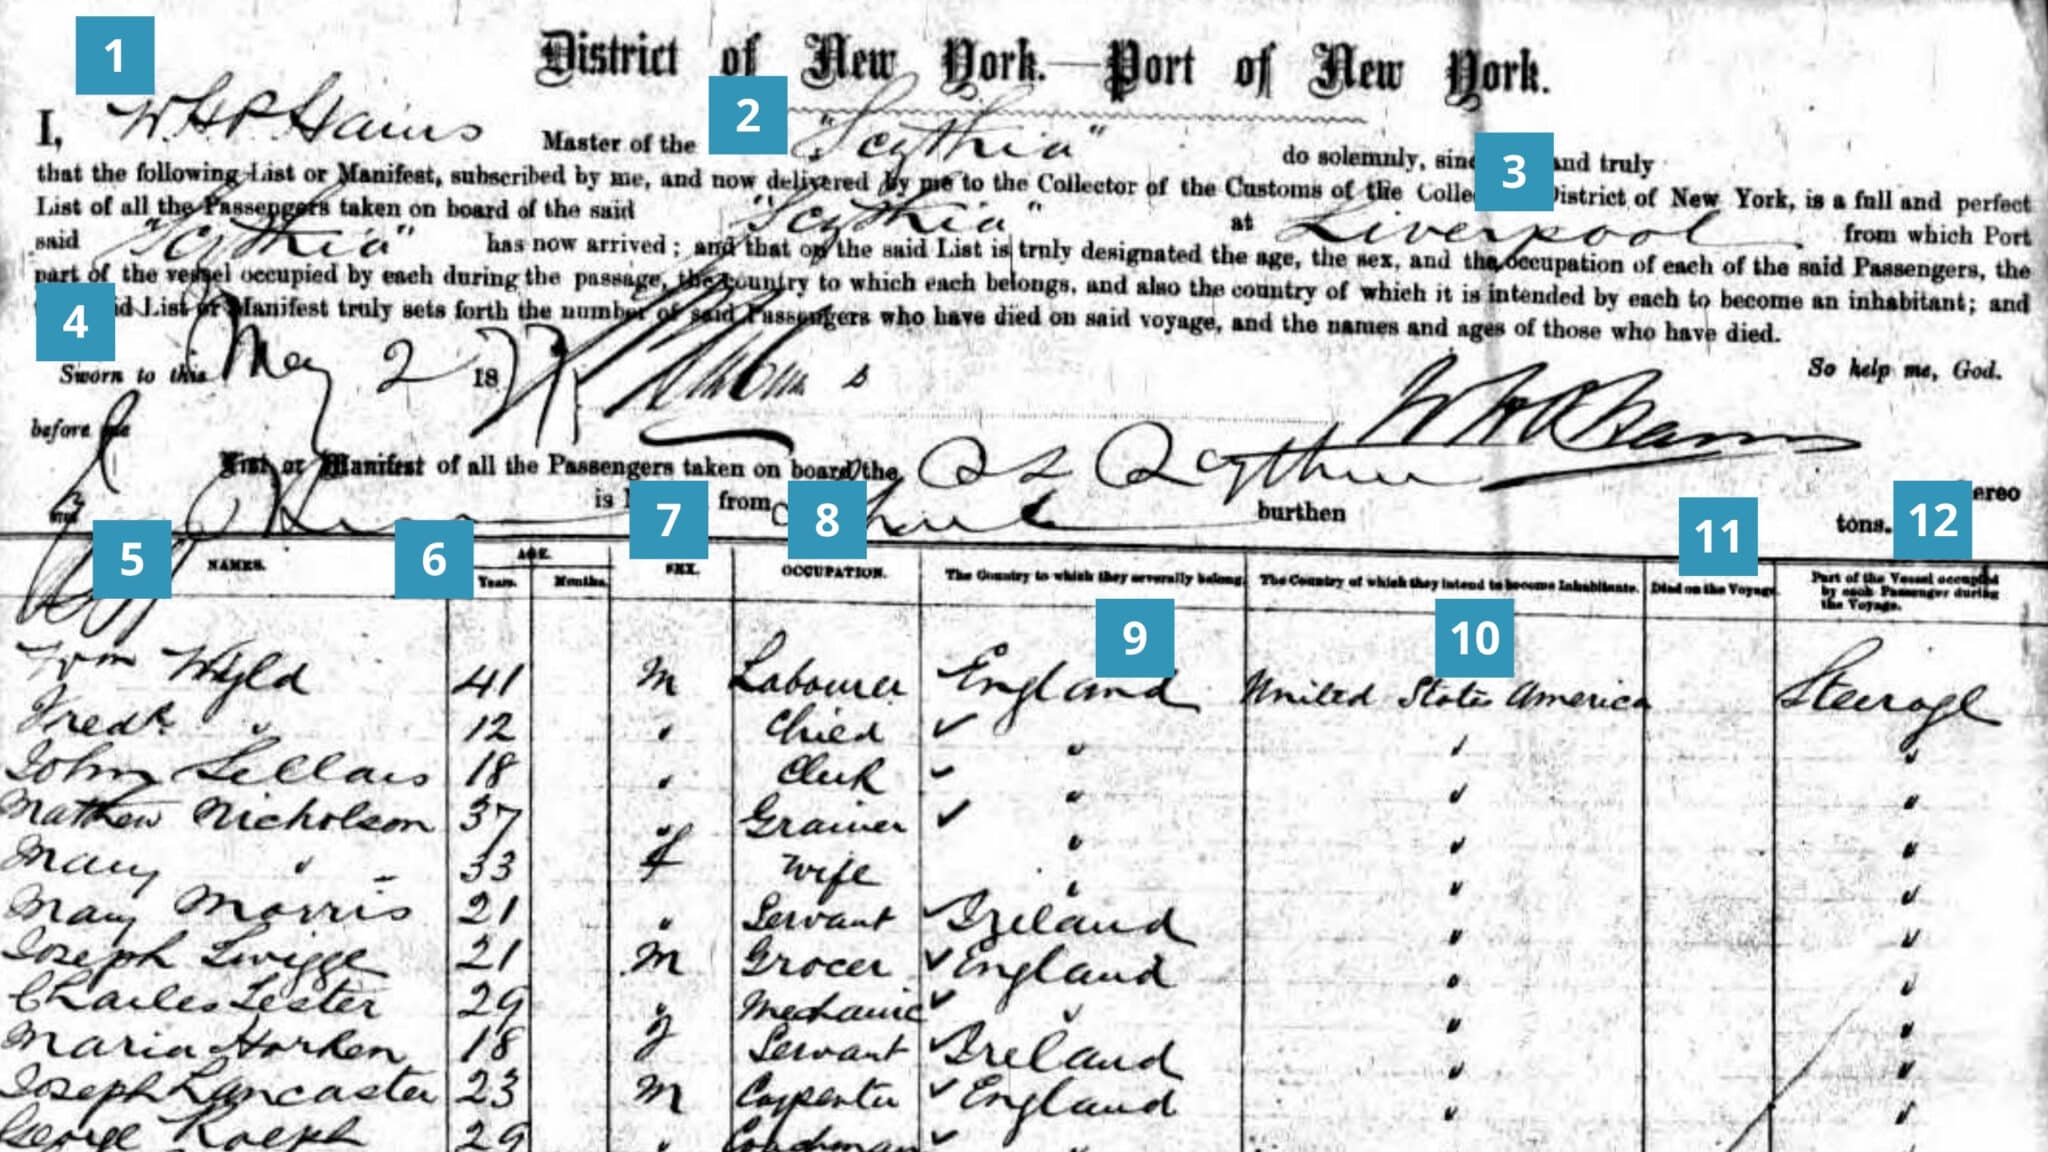 1
District of New York.—Port of New York.
2
I, W. H. P. Hains Master of the "Scythia" do solemnly, and truly
3
that the following List or Manifest, subscribed by me, and now delivered by me to the Collector of the Customs of the District of New York, is a full and perfect
List of all the Passengers taken on board of the said "Scythia" at Liverpool from which Port
said "Scythia" has now arrived; and that on the said List is truly designated the age, the sex, and the occupation of each of the said Passengers, the
part of the vessel occupied by each during the passage, the country to which each belongs, and also the country of which it is intended by each to become an inhabitant; and
4
List or Manifest truly sets forth the number of said Passengers who have died on said voyage, and the names and ages of those who have died.
Sworn to this May 2 18 So help me, God.
before me
List or Manifest of all the Passengers taken on board the Scythia
is from burthen tons.
5 6 7 8 11 12
NAMES. AGE. SEX. OCCUPATION. The Country to which they severally belong. The Country of which they intend to become Inhabitants. Died on the Voyage. Part of the Vessel occupied by each Passenger during the Voyage.
Years. Months.
9 10
Wm Wyld 41 M Labourer England United States America Steerage
Fredk " 12 " Child " " "
John Sellars 18 " Clerk " " "
Matthew Nicholson 37 " Grainer " " "
Mary " 33 f Wife " " "
Mary Morris 21 " Servant Ireland " "
Joseph Twigge 21 M Grocer England " "
Charles Lester 29 " Mechanic " " "
Maria Horken 18 f Servant Ireland " "
Joseph Lancaster 23 M Carpenter England " "
George Rolph 29 " Coachman "